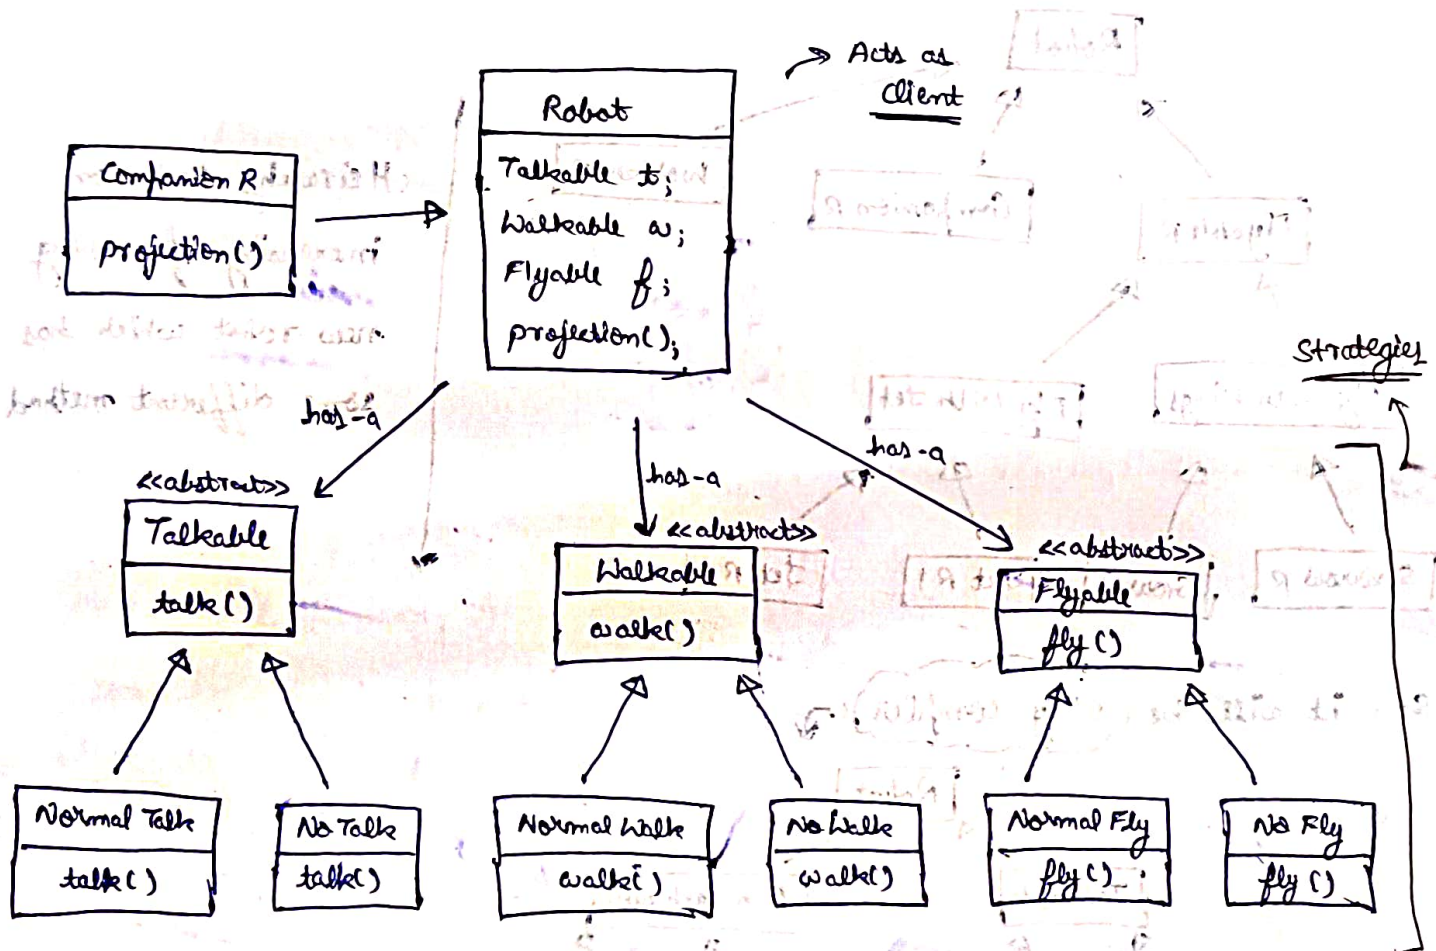 Acts as
Client
Robot
Talkable t;
Walkable w;
Flyable f;
projection();
Companion R
projection()
Strategies
has-a
has-a
has-a
<<abstract>>
Talkable
talk()
<<abstract>>
Walkable
walk()
<<abstract>>
Flyable
fly()
Normal Talk
talk()
No Talk
talk()
Normal Walk
walk()
No Walk
walk()
Normal Fly
fly()
No Fly
fly()